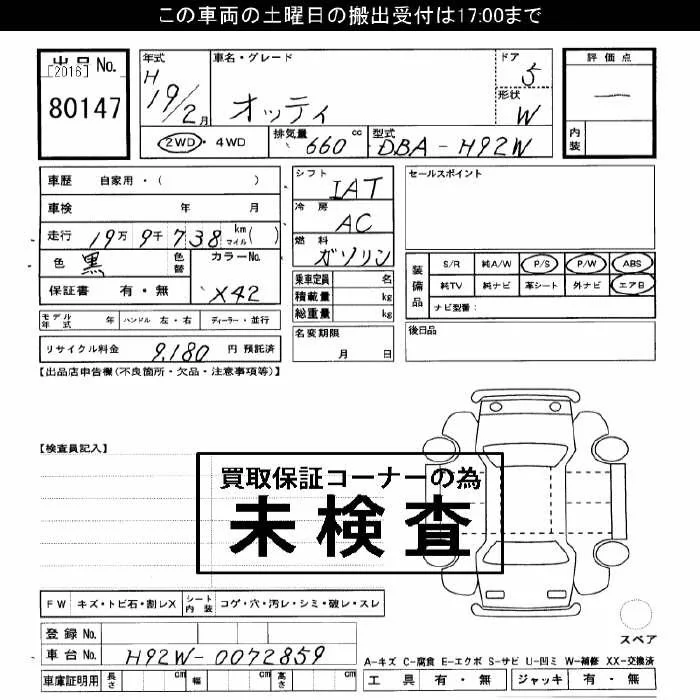 この車両の土曜日の搬出受付は17:00まで
出品 No.
[2016]
80147
年式
H
19/2月
車名・グレード
オッティ
ドア
5
形状
W
評価点
―
内装
2WD・4WD
排気量
660 cc
型式
DBA-H92W
車歴 自家用・( )
車検 年 月
走行 19万9千738 km マイル( )
色 黒
色替
カラーNo.
X42
保証書 有・無
モデル年式 年
ハンドル 左・右
ディーラー・並行
リサイクル料金 9,180 円 預託済
シフト
IAT
冷房
AC
燃料
ガソリン
乗車定員 名
積載量 kg
総重量 kg
名変期限
月 日
セールスポイント
装備品
S/R 純A/W P/S P/W ABS
純TV 純ナビ 革シート 外ナビ エアB
ナビ型番:
後日品
【出品店申告欄(不良箇所・欠品・注意事項等)】
【検査員記入】
買取保証コーナーの為
未検査
FW キズ・トビ石・割レX
シート内装 コゲ・穴・汚レ・シミ・破レ・スレ
スペア
登録 No.
車台 No. H92W-0072859
車庫証明用 長さ cm 幅 cm 高さ cm
A-キズ C-腐食 E-エクボ S-サビ U-凹ミ W-補修 XX-交換済
工具 有・無 ジャッキ 有・無